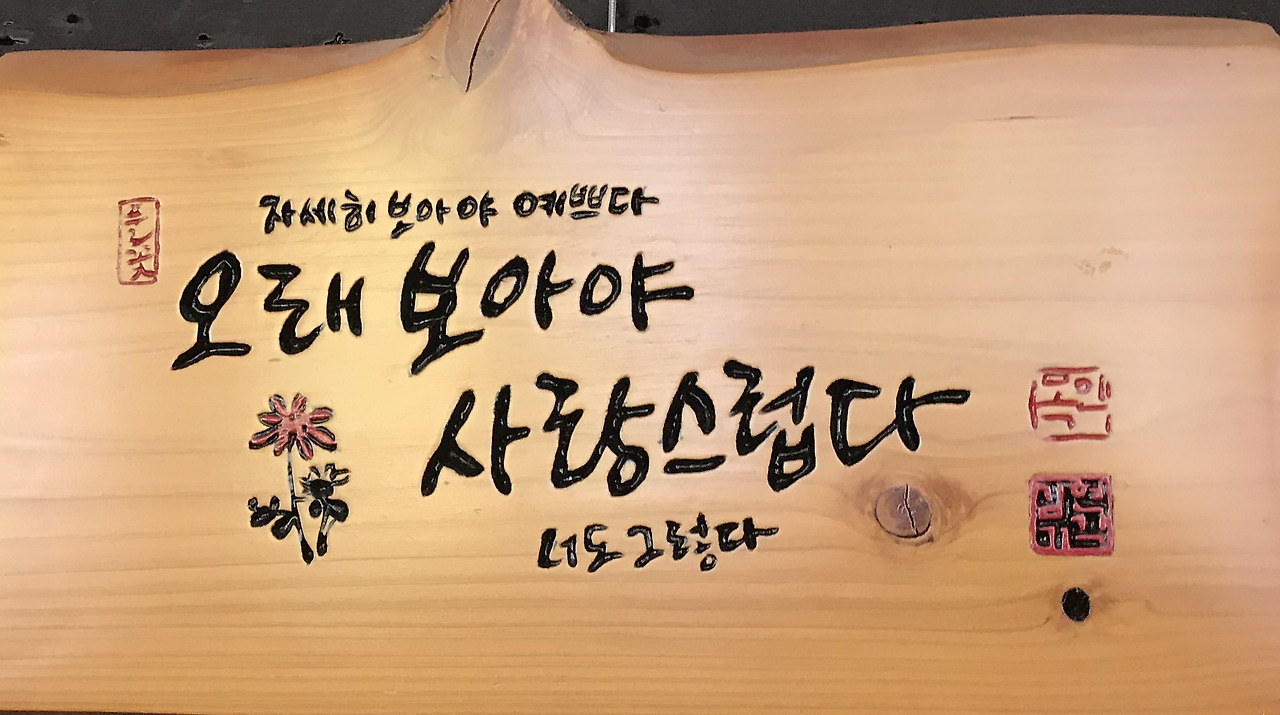 풀꽃
자세히 보아야 예쁘다
오래 보아야
사랑스럽다
너도 그렇다